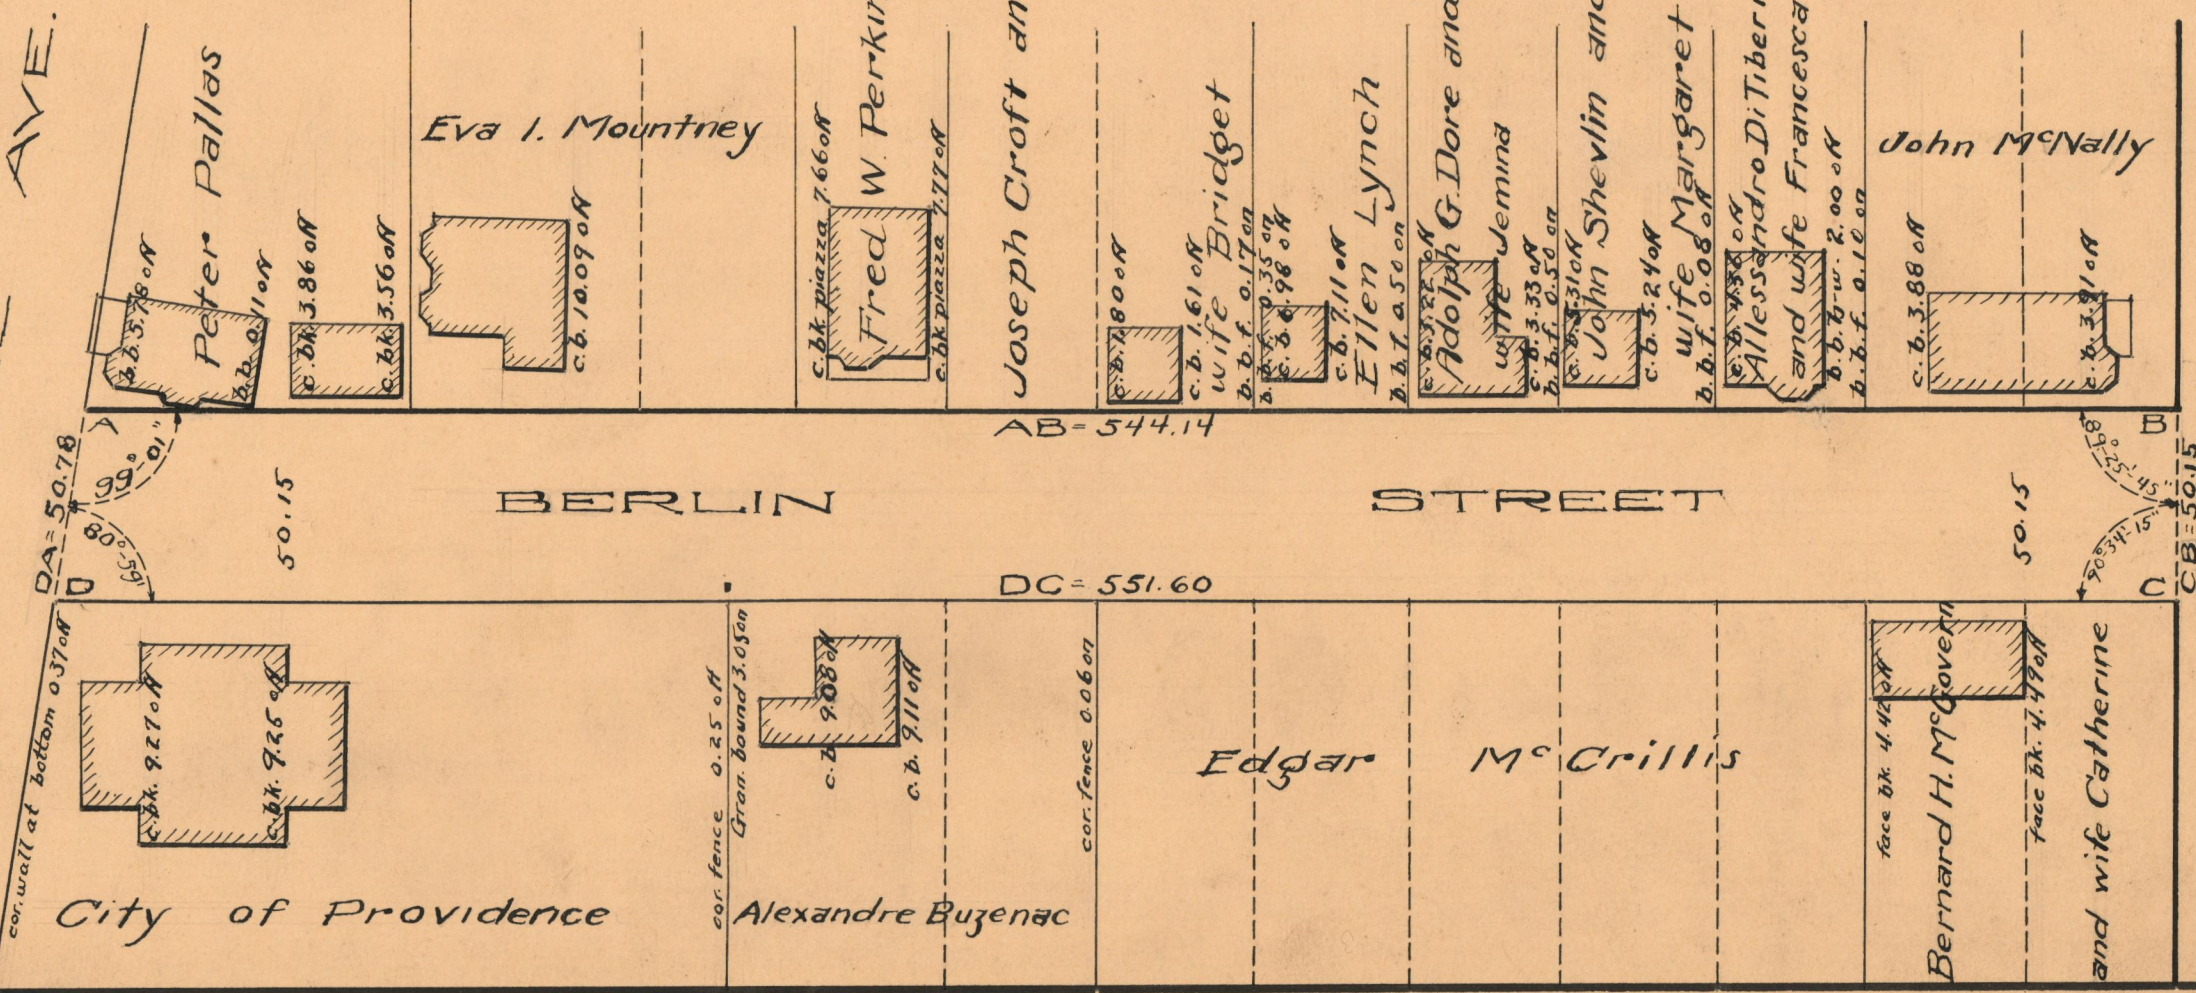 AVE.
Peter Pallas
b.b. 0.11 off
c. bk. 3.86 off
c. bk. 3.56 off
Eva I. Mountney
c.b. 10.09 off
c. bk piazza 7.66 off
Fred W. Perkin
c. bk piazza 7.77 off
Joseph Croft an
wife Bridget
c.b. 1.80 off
c.b. 1.61 off
b.b.f. 0.17 on
b.b.f. 0.35 on
c.b. 6.98 off
c.b. 7.11 off
Ellen Lynch
b.b.f. 0.50 on
c.b. 3.22 off
Adolph G. Dore and
wife Jemina
c.b. 3.33 off
b.b.f. 0.50 on
c.b. 5.31 off
John Shevlin and
wife Margaret
c.b. 5.24 off
b.b.f. 0.08 off
Allessandro DiTiberi
and wife Francesca
b.b.b-w. 2.00 off
b.b.f. 0.10 on
John McNally
c.b. 3.88 off
c.b. 3.91 off
AB = 544.14
A
B
99°-01'
89°-25'-45"
DA = 50.78
50.15
BERLIN STREET
50.15
CB = 50.15
80°-59'
90°-34'-15"
D
DC = 551.60
C
cor. wall at bottom 0.37 off
c. bk. 9.27 off
c. bk. 9.25 off
City of Providence
cor. fence 0.25 off
Gran. bound 3.05 on
c.b. 9.08 off
c.b. 9.11 off
Alexandre Buzenac
cor. fence 0.06 on
Edgar McCrillis
face bk. 4.42 off
Bernard H. McGovern
face bk. 4.49 off
and wife Catherine